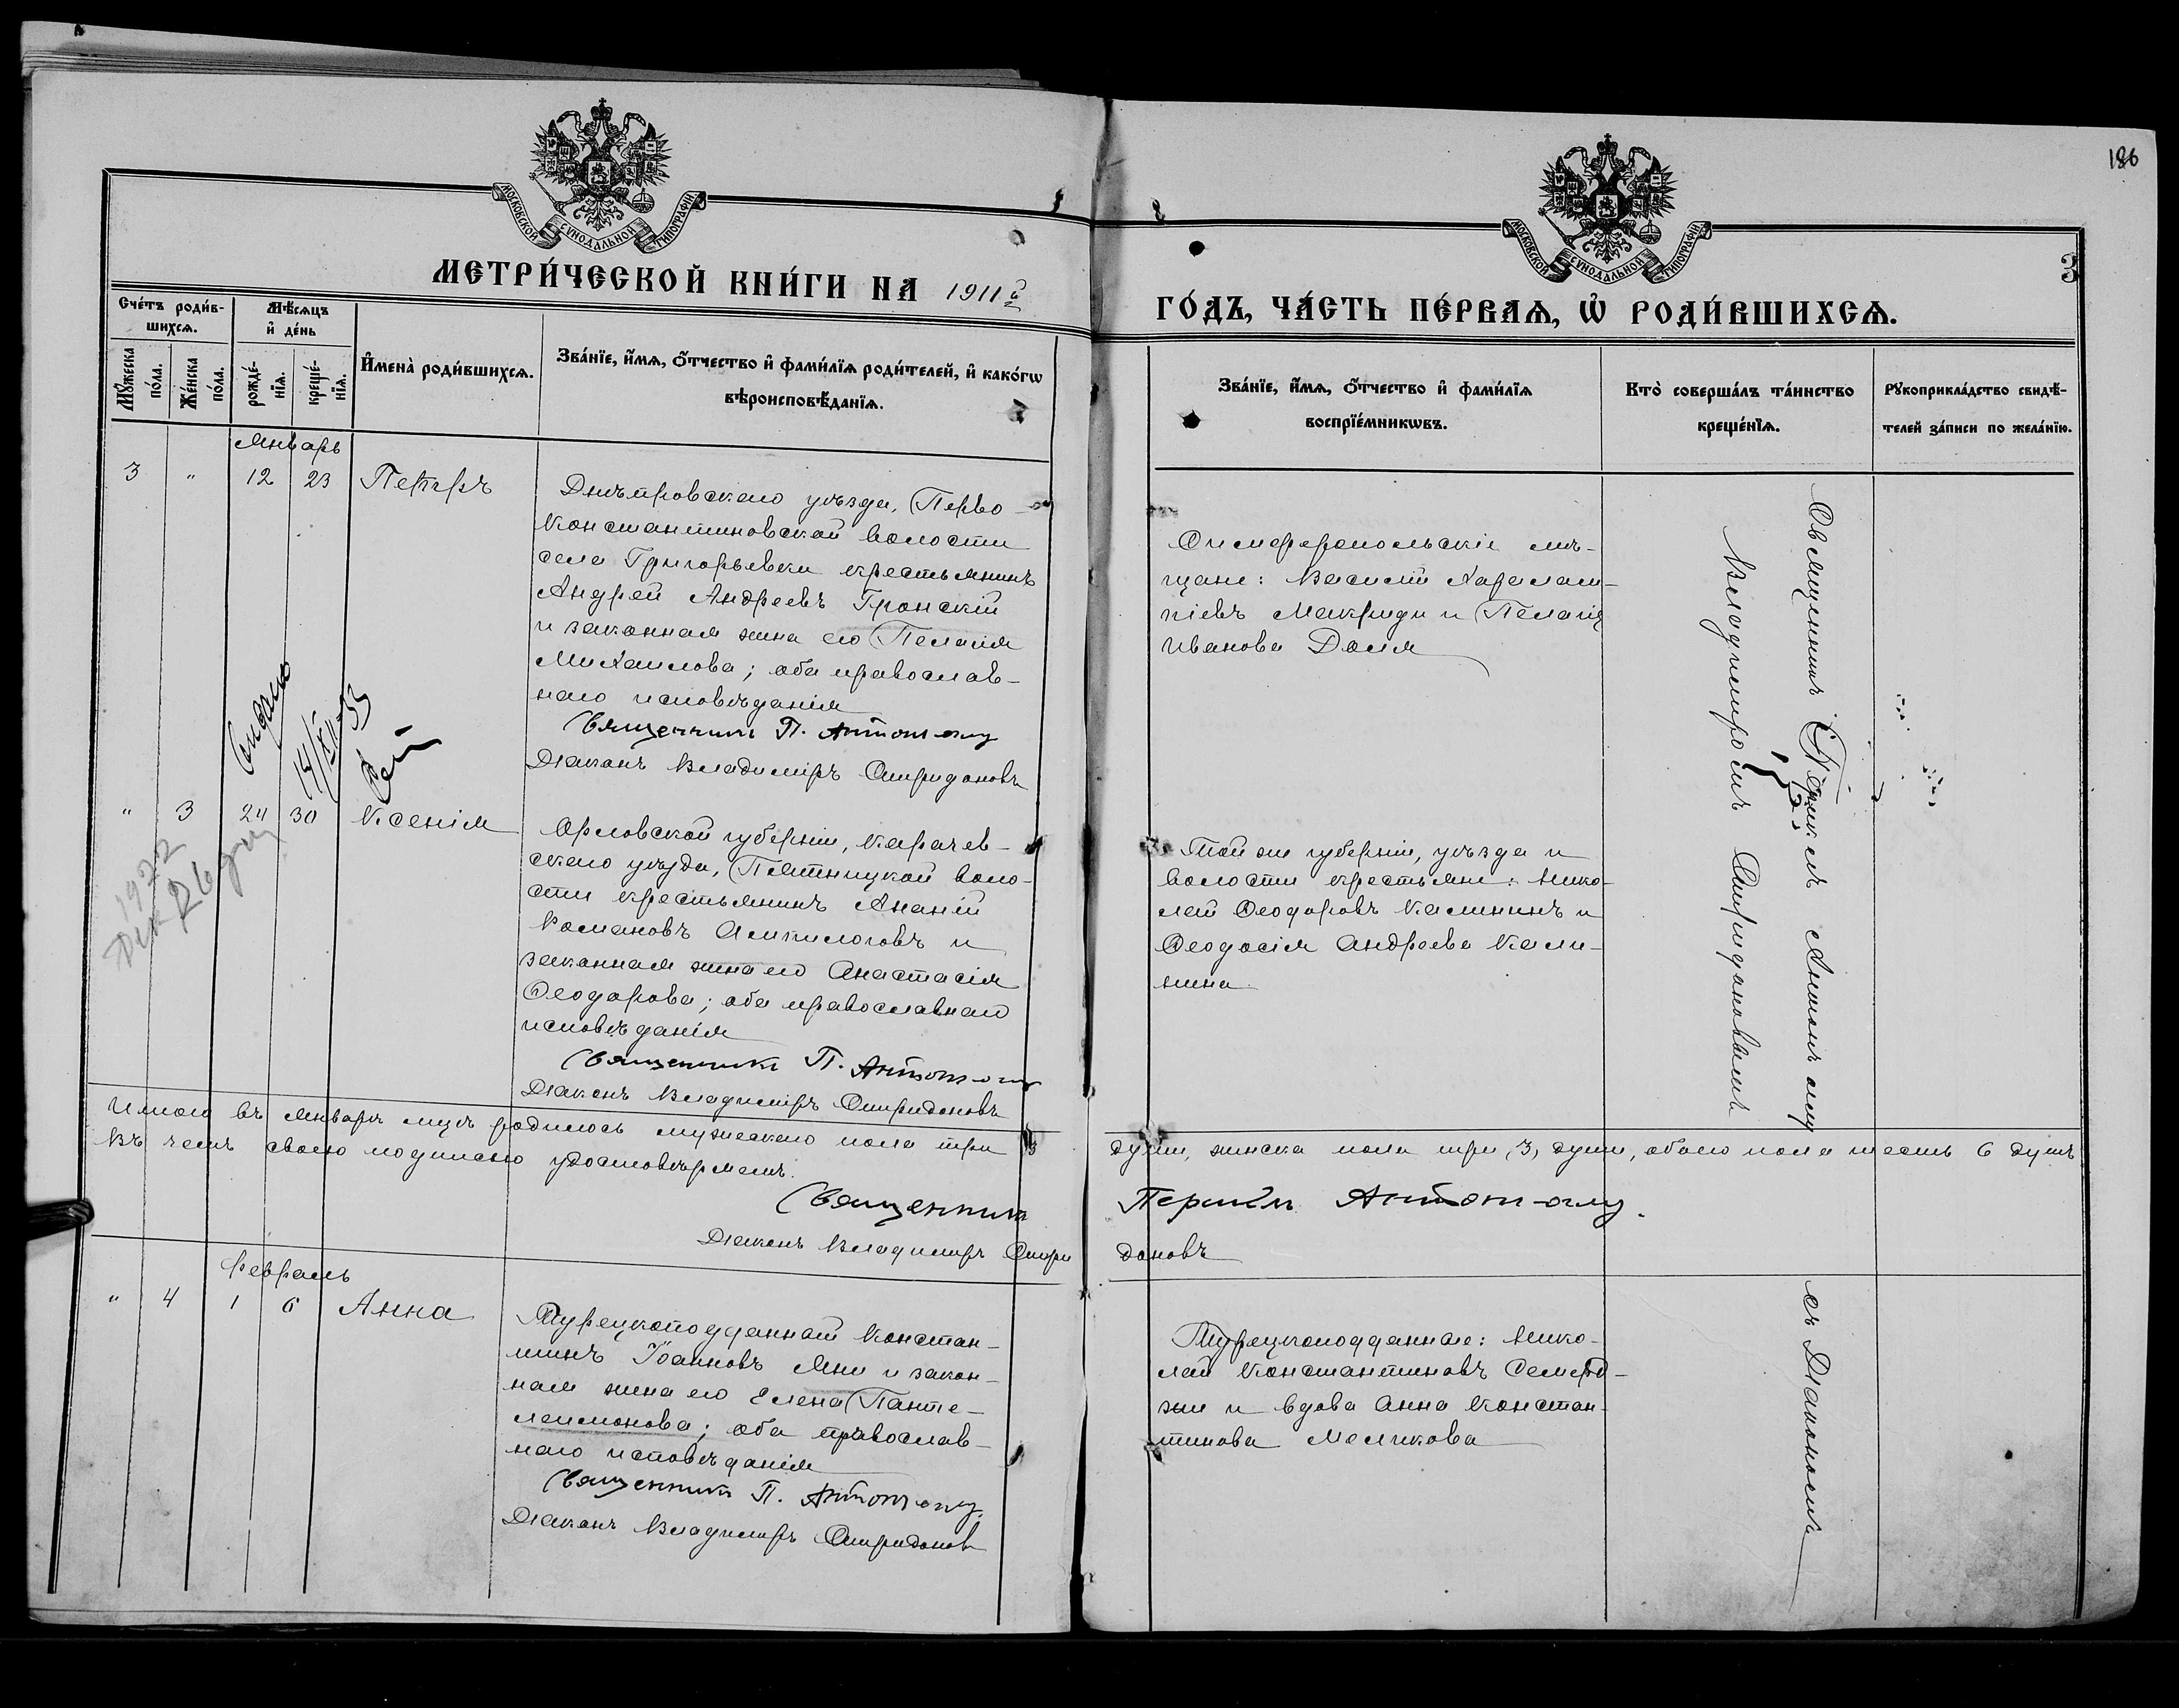 186
МОСКОВСКОЙ СѴНОДАЛЬНОЙ ТИПОГРАФІИ
МОСКОВСКОЙ СѴНОДАЛЬНОЙ ТИПОГРАФІИ
3
МЕТРИ́ЧЕСКОЙ КНИ́ГИ НА 1911й
ГО́ДЪ, ЧА́СТЬ ПЕ́РВАѦ, Ѡ҆ РОДИ́ВШИХСѦ.
Сче́тъ роди́в-
шихсѧ.
Мѣ́сѧцъ
и҆ де́нь
Мꙋ́жеска
по́ла.
Же́нска
по́ла.
рожде́-
нїѧ.
креще́-
нїѧ.
И҆мена̀ роди́вшихсѧ.
Зва́нїе, и҆́мѧ, ѻ҆́тчество и҆ фами́лїѧ роди́телей, и҆ како́гѡ
вѣроисповѣ́данїѧ.
Зва́нїе, и҆́мѧ, ѻ҆́тчество и҆ фами́лїѧ
воспрїе́мникѡвъ.
Кто̀ соверша́лъ та́инство
креще́нїѧ.
Рꙋкоприкла́дство свидѣ́-
телей за́писи по жела́нїю.
Январь
3 " 12 23 Петръ
Днѣпровскаго уѣзда, Перво-
Константиновской волости
села Григорьевки крестьянинъ
Андрей Андреевъ Гронскій
и законная жена его Пелагія
Михаилова; оба православ-
наго исповѣданія
Священникъ П. Антоноглу
Діаконъ Владиміръ Спиридоновъ
Симферопольскіе мѣ-
щане: Василій Харалам-
піевъ Макриди и Пелагія
Иванова Доля
Священникъ Периклъ Антоноглу
съ Діакономъ
Владиміромъ Спиридоновымъ
Выдано
14/XII-33
" 3 24 30 Ксенія
1922
Дек 26 дня
Орловской губерніи, Карачев-
скаго уѣзда, Пятницкой воло-
сти крестьянинъ Ананій
Романовъ Ампилоговъ и
законная жена его Анастасія
Ѳеодорова; оба православнаго
исповѣданія
Священникъ П. Антоноглу
Діаконъ Владиміръ Спиридоновъ
Той же губерніи, уѣзда и
волости крестьяне: Нико-
лай Ѳеодоровъ Калининъ и
Ѳеодосія Андреева Кали-
нина.
Итого въ Январѣ мцѣ родилось мужескаго пола три 3 души, женска пола три, 3, души, обоего пола шесть 6 душъ
Въ чемъ своею подписью удостовѣряемъ.
Священникъ Периклъ Антоноглу.
Діаконъ Владиміръ Спиридоновъ
Февраль
" 4 1 6 Анна
Турецкоподданный Констан-
тинъ Іоанновъ Яни и закон-
ная жена его Елена Панте-
леимонова; оба православ-
наго исповѣданія
Священникъ П. Антоноглу.
Діаконъ Владиміръ Спиридоновъ
Турецкоподданные: Нико-
лай Константиновъ
и вдова Анна Констан-
тинова Меликова